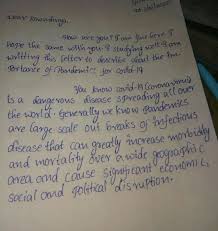 Dear Kowadinga,
How are you? I am fine here I
hope the same with you & studying well. I am
writting this letter to describe about the Im
portance of Pandemics for covid-19
You know covid-19 (coronavirus)
Is a dangerous disease spreading all over
the world. Generally we know Pandemics
are large scale out breaks of infectious
disease that can greatly increase morbidity
and mortality over a wide geographic
area and cause significant economic,
social and political disruption.